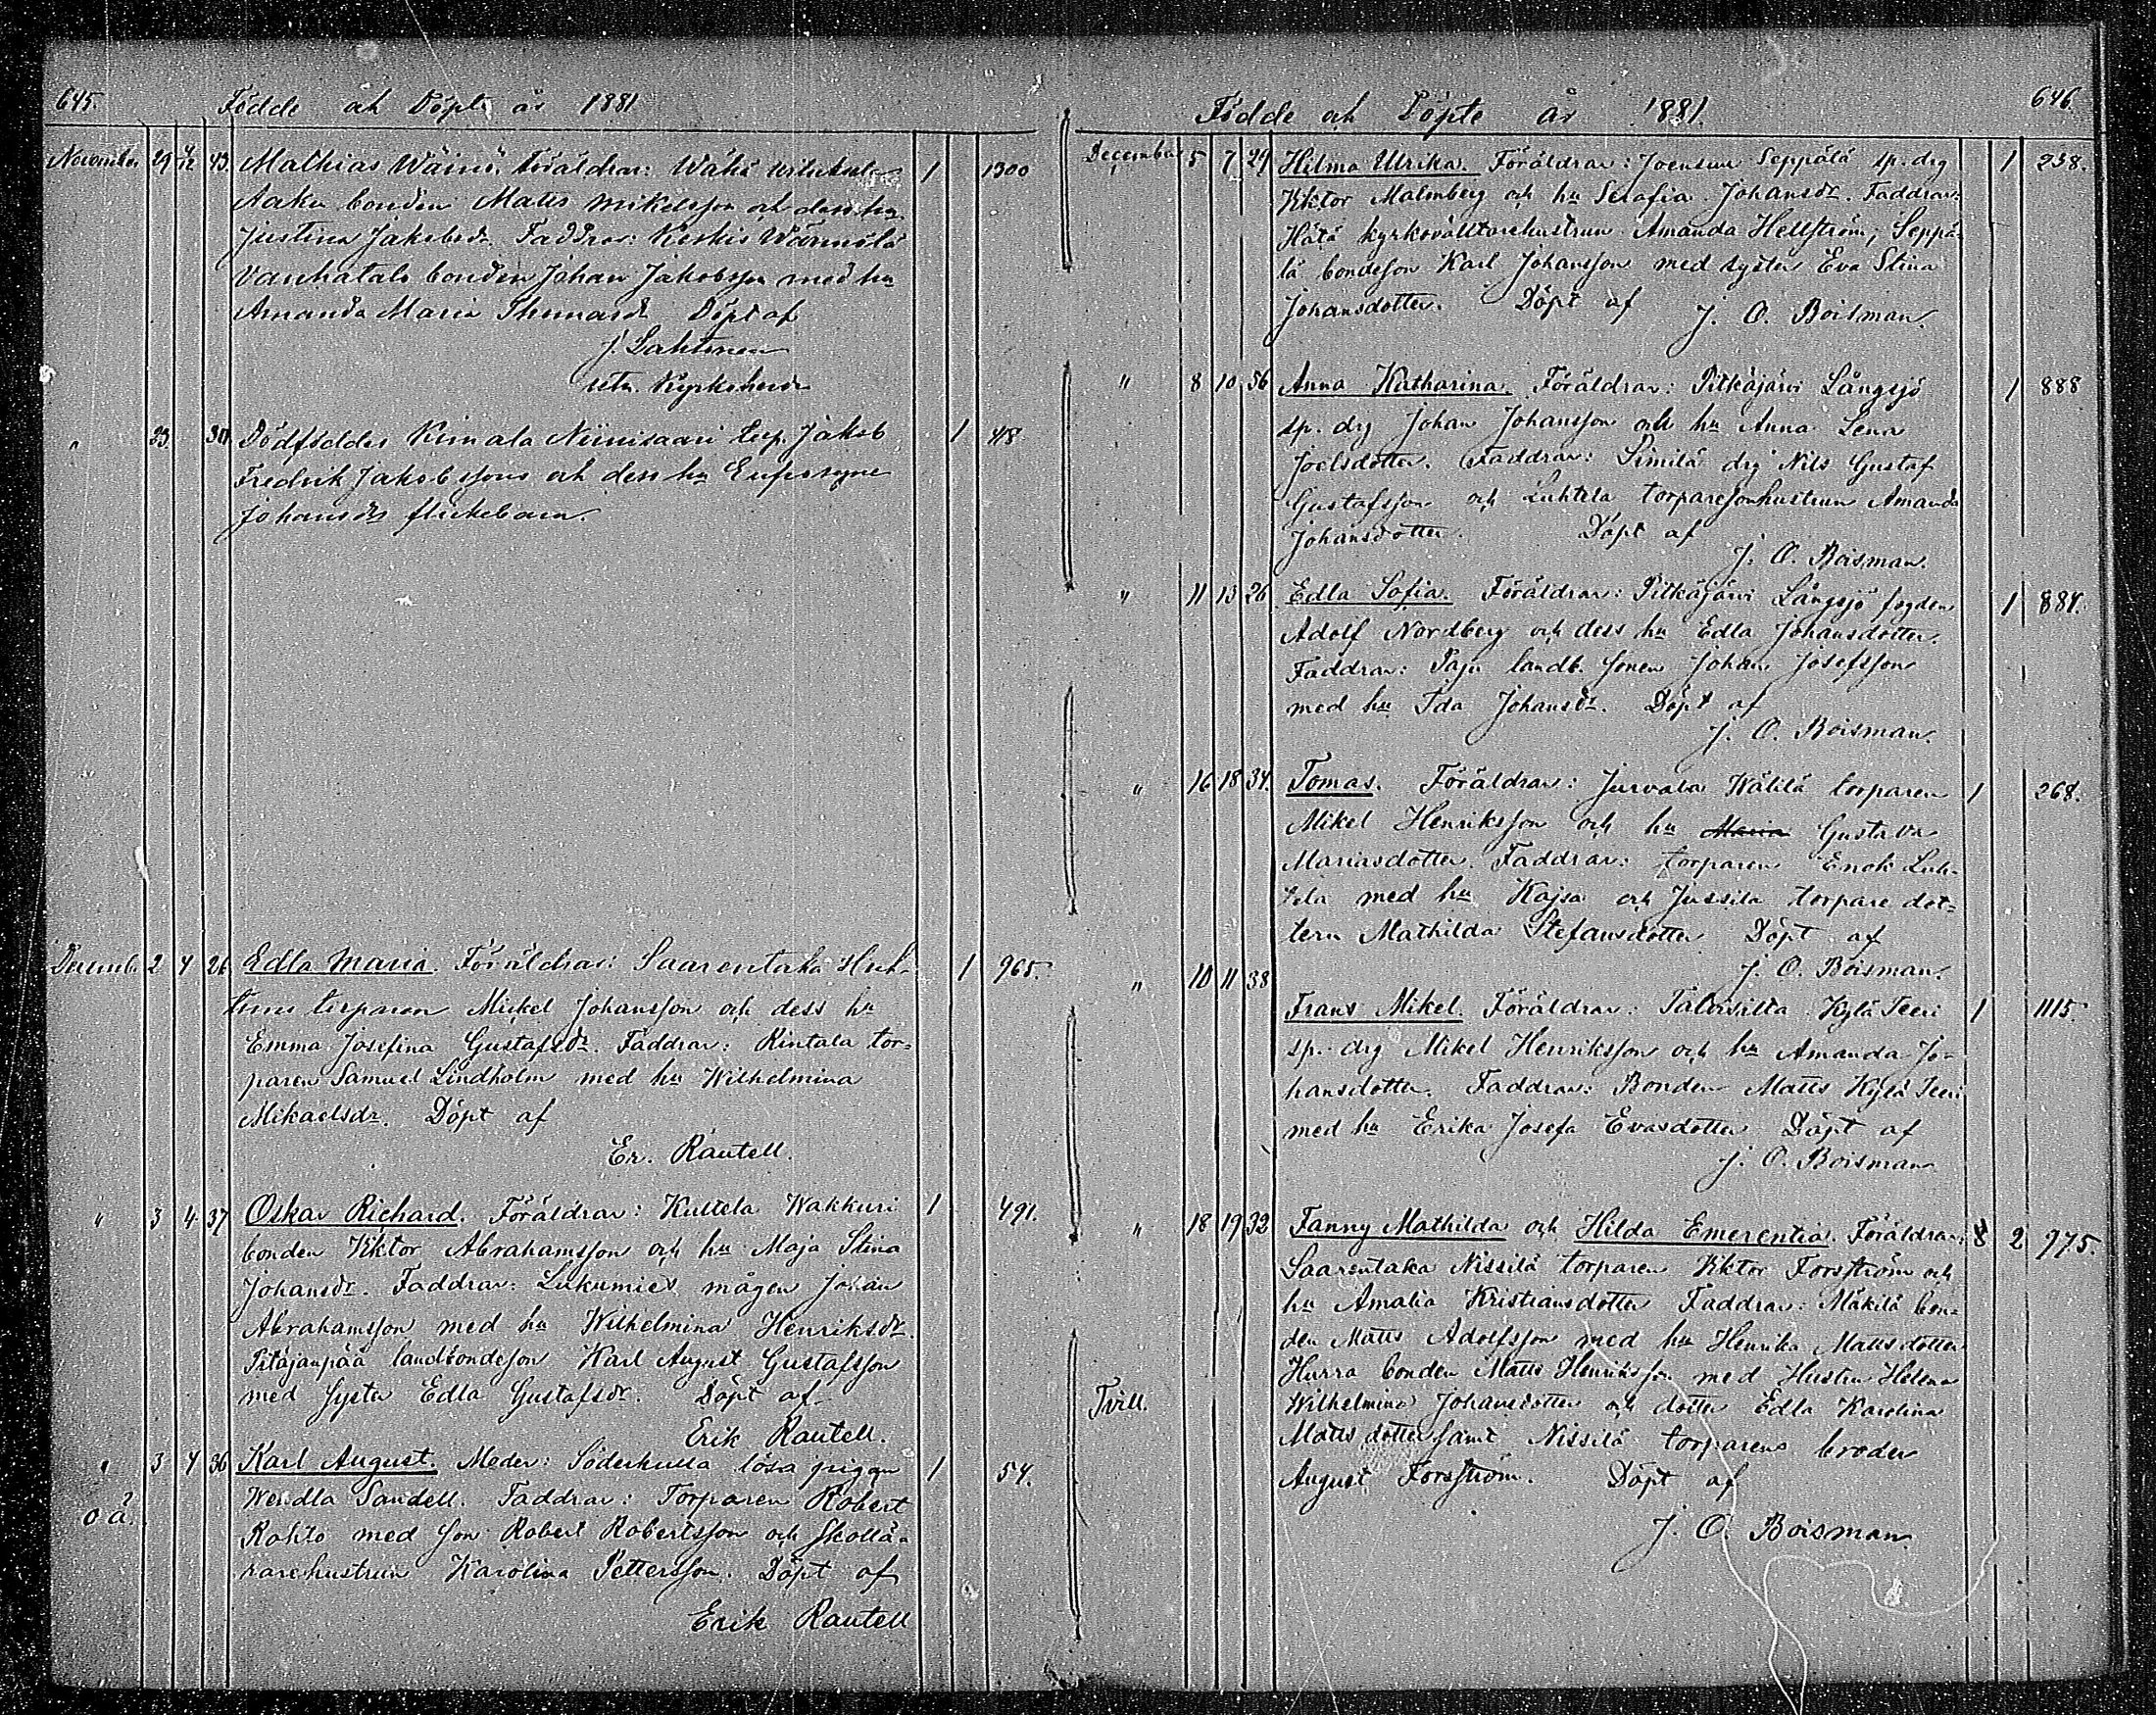 645. Födde och Döpte år 1881
November 29 4/12 43. Mathias Wäinö. Föräldrar: Wähä 1 1300
bonden Matts Mikelsson och dess hu
Justina Jakobsdr. Faddrar: Keskis Wännilä
Vanhatalo bonden Johan Jakobsson med hu
Amanda Maria Thomasdr Döpt af
J. Lahtinen
Kyrkoherde
" 23. 30 Dödföddes Kimala Niinisaari torp. Jakob 1 418.
Fredrik Jakobssons och dess hu Eufrosyne
Johansdrs flickebarn.
Decemb. 2 4 26 Edla Maria. Föräldrar: Saarentaka Huh- 1 965.
torparen Mickel Johansson och dess hu
Emma Josefina Gustafsdr. Faddrar: Rintala tor=
paren Samuel Lindholm med hu Wilhelmina
Mikaelsdr. Döpt af
Er. Rautell.
" 3 4. 37 Oskar Richard. Föräldrar: Kultela Wakkuri 1 491.
bonden Viktor Abrahamsson och hu Maja Stina
Johansdr. Faddrar: mågen Johan
Abrahamsson med hu Wilhelmina Henriksdr.
Pitäjänpää landbondeson Karl August Gustafsson
med syster Edla Gustafsdr. Döpt af
Erik Rautell.
" 3 4 36 Karl August. Moder: Söderkulla lösa pigan 1 54.
o ä. Wendla Sandell. Faddrar: Torparen Robert
Rohto med son Robert Robertsson och Skollä=
rarehustrun Karolina Pettersson. Döpt af
Erik Rautell
Födde och Döpte år 1881. 646.
December 5 7 29 Hilma Ulrika. Föräldrar: Joensuu Seppälä sp. drg 1 238.
Viktor Malmberg och hu Serafia Johansdr. Faddrar:
Hätä kyrkovältarehustrun Amanda Hellström, Seppä=
lä bondeson Karl Johansson med syster Eva Stina
Johansdotter. Döpt af J. O. Boisman.
" 8 10 56 Anna Katharina. Föräldrar: Pitkäjärvi Långsjö 1 888
sp. drg Johan Johansson och hu Anna Lena
Joelsdotter. Faddrar: Similä drg Nils Gustaf
Gustafsson och Luhtela torparesonhustrun Amanda
Johansdotter. Döpt af
J. O. Boisman.
" 11 13 26 Edla Sofia. Föräldrar: Pitkäjärvi Långsjö fogden 1 884.
Adolf Nordberg och dess hu Edla Johansdotter.
Faddrar: Paju landb. sonen Johan Josefsson
med hu Ida Johansdr. Döpt af
J. O. Boisman.
" 16 18 34. Tomas. Föräldrar: Jurvala Wälilä torparen 1 268.
Mikel Henriksson och hu Maria Gustava
Mariasdotter. Faddrar: torparen Enok Luh-
tela med hu Kajsa och Jussila torpare dot=
tern Mathilda Stefansdotter Döpt af
J. O. Boisman.
" 10 11 38 Frans Mikel. Föräldrar: Talvisilta Kylä Teeri 1 1115.
sp. drg Mikel Henriksson och hu Amanda Jo-
hansdotter. Faddrar: Bonden Matts Kylä Teeri
med hu Erika Josefa Evasdotter Döpt af
J. O. Boisman
" 18 19 32 Fanny Mathilda och Hilda Emerentia. Föräldrar: 2 975.
Saarentaka Nissilä torparen Viktor Forsström och
hu Amalia Kristiansdotter Faddrar: Mäkilä bon=
den Matts Adolfsson med hu Henrika Mattsdotter
Hurra bonden Matts Henriksson med Hustru Helena
Tvill. Wilhelmina Johansdotter och dotter Edla Karolina
Mattsdotter samt Nissilä torparens broder
August Forsström. Döpt af
J. O. Boisman